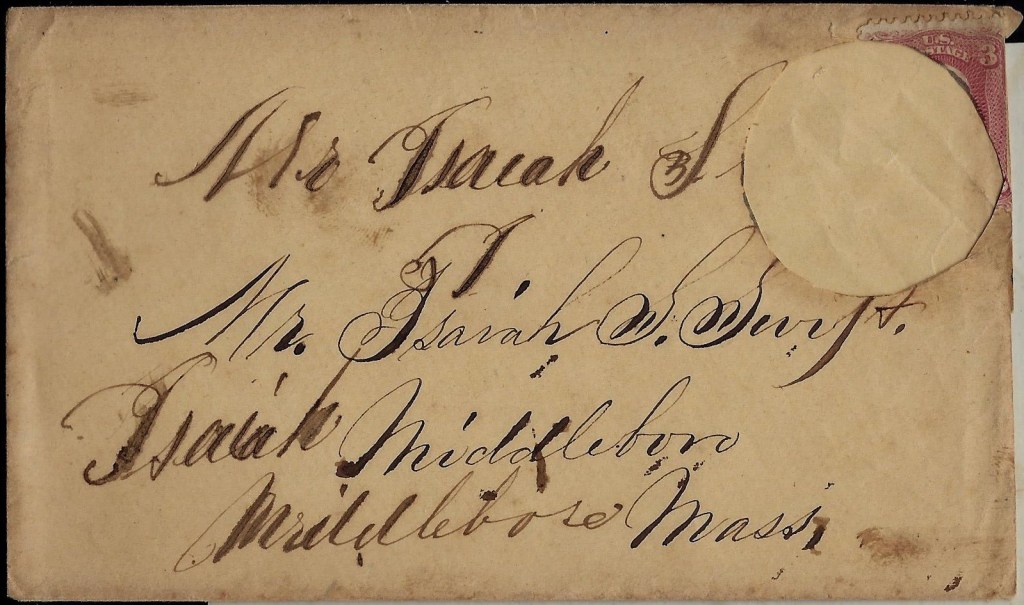 U.S. POSTAGE 3
Mr Isaiah S
I
Mr. Isaiah S. Swift.
Isaiah Middleboro
Middleboro Mass,